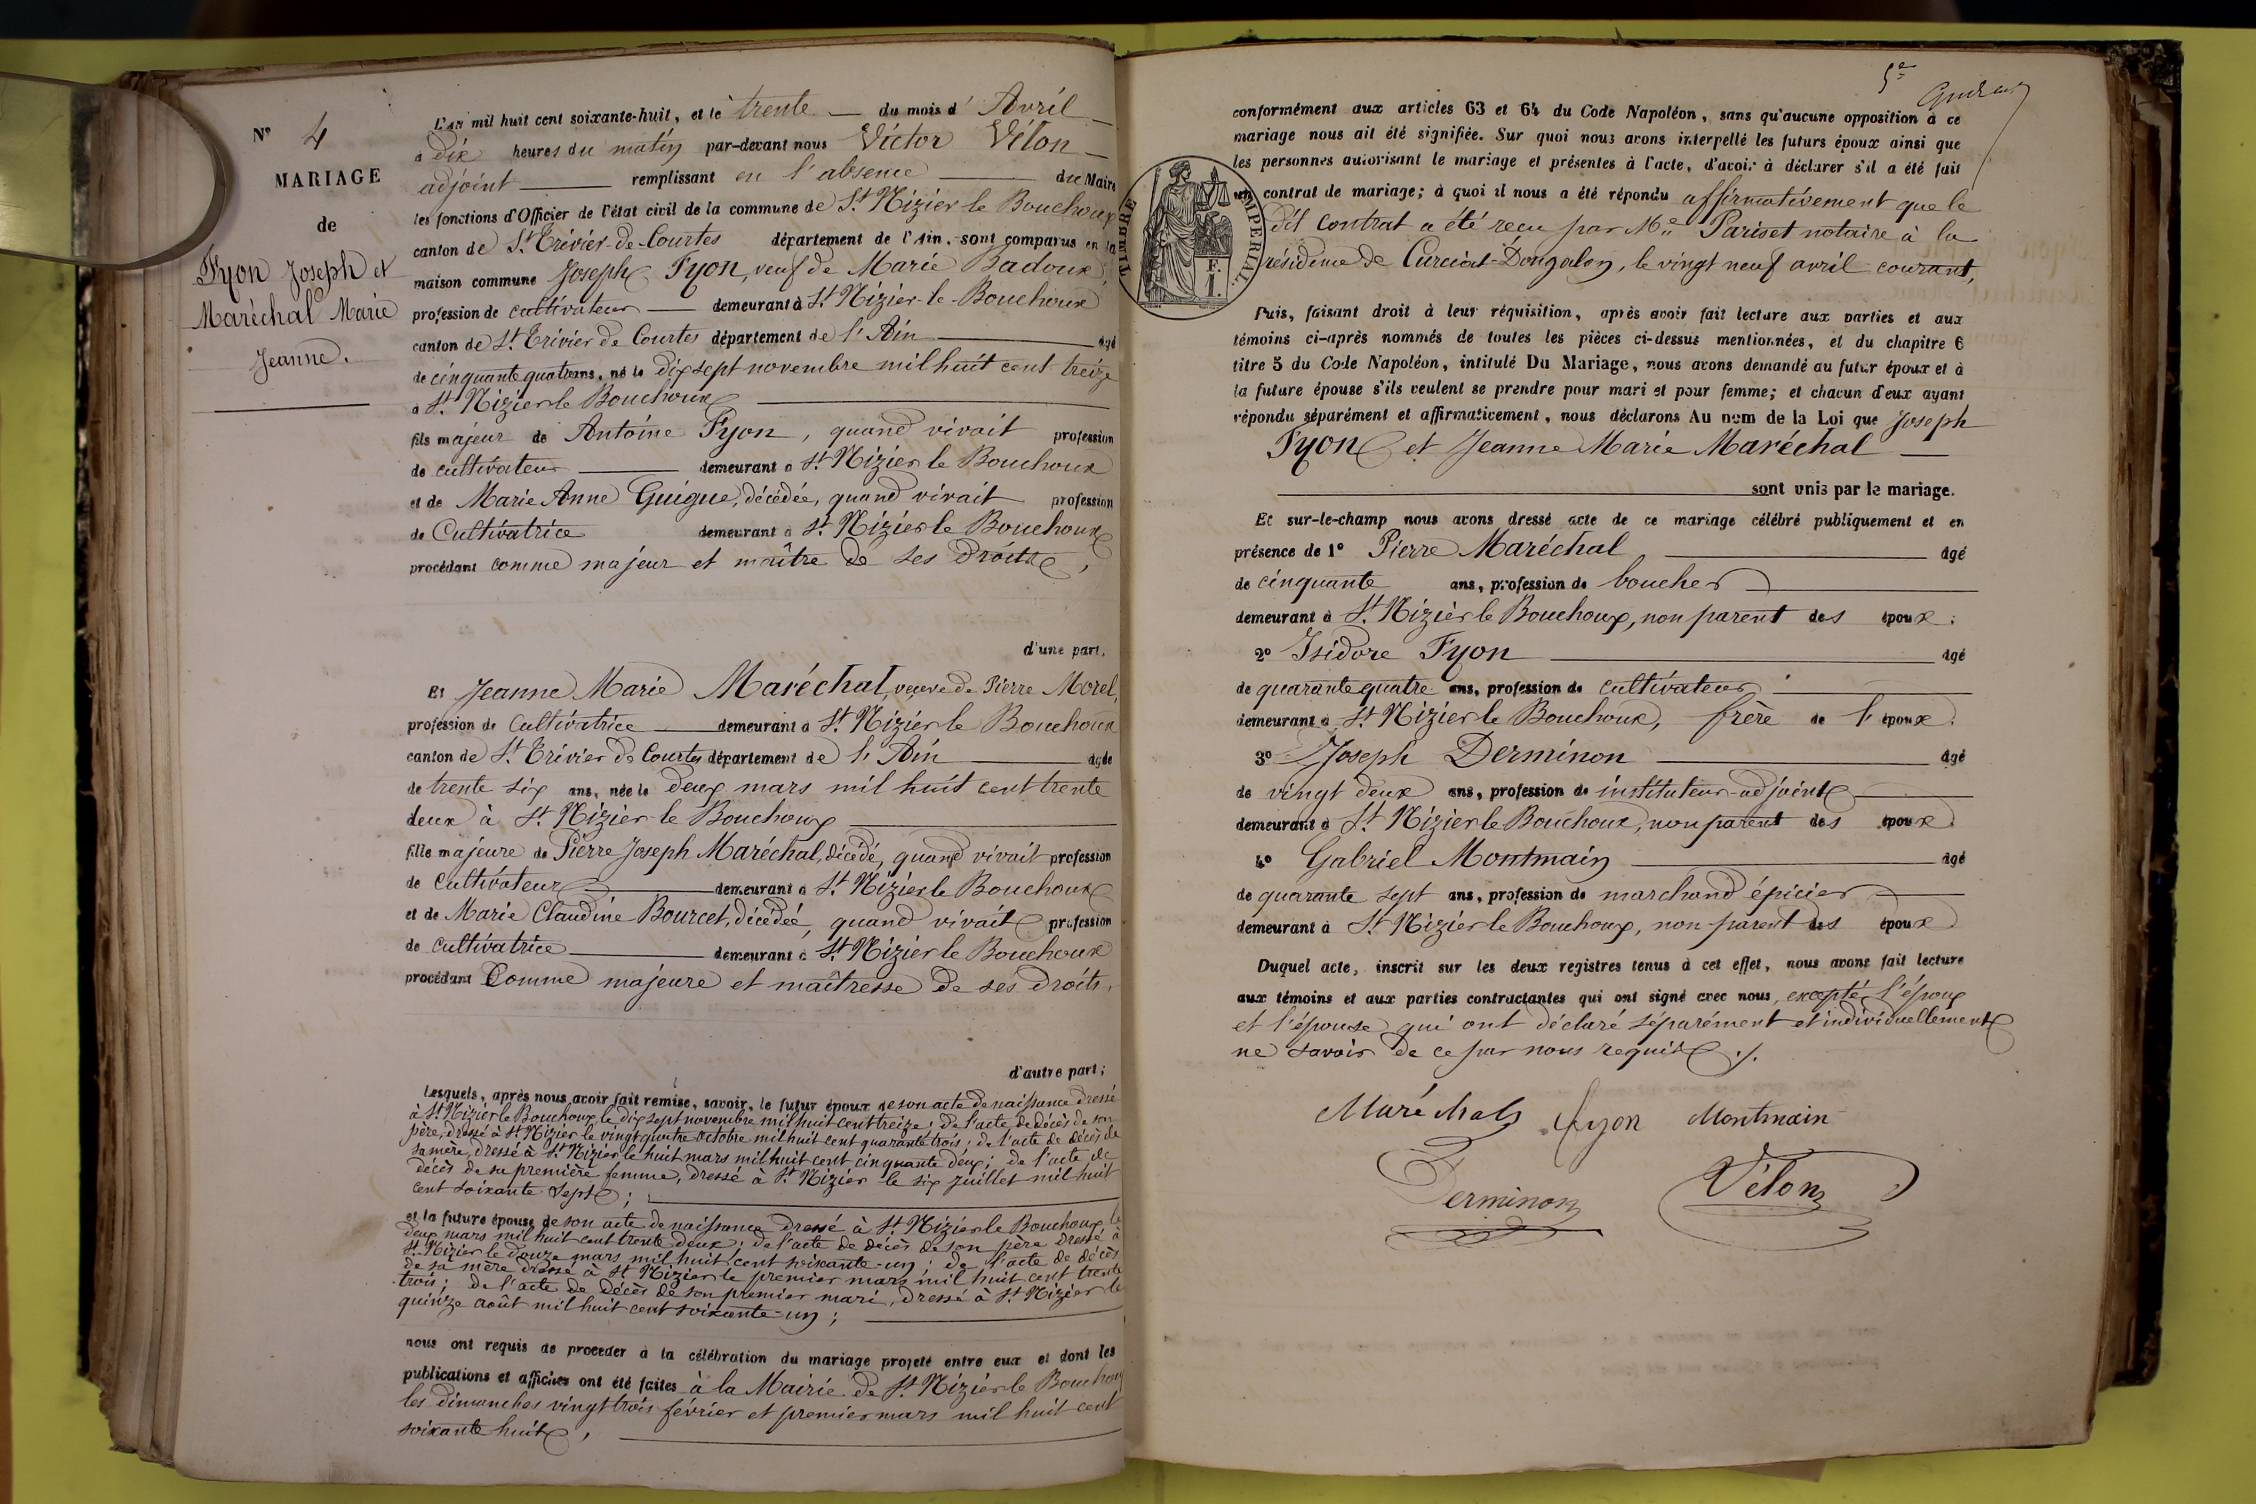 N° 4
MARIAGE
de
Fyon Joseph et
Maréchal Marie
Jeanne.
L'an mil huit cent soixante-huit, et le trente du mois d' Avril
à dix heures du matin par-devant nous Victor Vélon
adjoint remplissant en l'absence du Maire
les fonctions d'Officier de l'état civil de la commune de St. Nizier le Bouchoux
canton de St. Trivier-de-Courtes département de l'Ain, sont comparus en la
maison commune Joseph Fyon, veuf de Marie Badoux,
profession de cultivateur demeurant à St. Nizier-le-Bouchoux
canton de St. Trivier de Courtes département de l'Ain âgé
de cinquante quatre ans, né le dix sept novembre mil huit cent treize
à St. Nizier le Bouchoux
fils majeur de Antoine Fyon, quand vivait profession
de cultivateur demeurant à St. Nizier le Bouchoux
et de Marie Anne Guigue, décédée, quand vivait profession
de Cultivatrice demeurant à St. Nizier le Bouchoux
procédant comme majeur et maître de ses droits,
d'une part.
Et Jeanne Marie Maréchal, veuve de Pierre Morel,
profession de Cultivatrice demeurant à St. Nizier le Bouchoux
canton de St. Trivier de Courtes département de l'Ain âgée
de trente six ans, née le deux mars mil huit cent trente
deux à St. Nizier-le Bouchoux
fille majeure de Pierre Joseph Maréchal, décédé, quand vivait profession
de Cultivateur demeurant à St. Nizier le Bouchoux
et de Marie Claudine Bourcet, décédée, quand vivait profession
de cultivatrice demeurant à St. Nizier le Bouchoux
procédant Comme majeure et maîtresse de ses droits,
d'autre part;
Lesquels, après nous avoir fait remise, savoir, le futur époux de son acte de naissance dressé
à St. Nizier le Bouchoux le dix sept novembre mil huit cent treize; de l'acte de décès de son
père, dressé à St. Nizier le vingt quatre octobre mil huit cent quarante trois; de l'acte de décès de
sa mère, dressé à St. Nizier le huit mars mil huit cent cinquante deux; de l'acte de
décès de sa première femme, dressé à St. Nizier le six juillet mil huit
cent soixante sept;
et la future épouse de son acte de naissance dressé à St. Nizier le Bouchoux, le
deux mars mil huit cent trente deux; de l'acte de décès de son père dressé à
St. Nizier le douze mars mil huit cent soixante-un; de l'acte de décès
de sa mère dressé à St Nizier le premier mars mil huit cent trente
trois; de l'acte de décès de son premier mari, dressé à St. Nizier le
quinze août mil huit cent soixante-un;
nous ont requis de procéder à la célébration du mariage projeté entre eux et dont les
publications et affiches ont été faites à la Mairie de St. Nizier le Bouchoux
les dimanches vingt trois février et premier mars mil huit cent
soixante huit,
5e
conformément aux articles 63 et 64 du Code Napoléon, sans qu'aucune opposition à ce
mariage nous ait été signifiée. Sur quoi nous avons interpellé les futurs époux ainsi que
les personnes autorisant le mariage et présentes à l'acte, d'avoir à déclarer s'il a été fait
un contrat de mariage; à quoi il nous a été répondu affirmativement que le
dit Contrat a été reçu par Me. Pariset notaire à la
résidence de Curciat-Dongalon, le vingt neuf avril courant,
TIMBRE IMPERIAL
F.
1.
Puis, faisant droit à leur réquisition, après avoir fait lecture aux parties et aux
témoins ci-après nommés de toutes les pièces ci-dessus mentionnées, et du chapitre 6
titre 5 du Code Napoléon, intitulé Du Mariage, nous avons demandé au futur époux et à
la future épouse s'ils veulent se prendre pour mari et pour femme; et chacun d'eux ayant
répondu séparément et affirmativement, nous déclarons Au nom de la Loi que Joseph
Fyon et Jeanne Marie Maréchal
sont unis par le mariage.
Et sur-le-champ nous avons dressé acte de ce mariage célébré publiquement et en
présence de 1° Pierre Maréchal âgé
de cinquante ans, profession de boucher
demeurant à St. Nizier le Bouchoux, non parent des époux;
2° Isidore Fyon âgé
de quarante quatre ans, profession de cultivateur
demeurant à St. Nizier le Bouchoux, frère de l'époux.
3° Joseph Derminon âgé
de vingt deux ans, profession de instituteur-adjoint
demeurant à St. Nizier le Bouchoux, non parent des époux
4° Gabriel Montmain âgé
de quarante sept ans, profession de marchand épicier
demeurant à St. Nizier le Bouchoux, non parent des époux
Duquel acte, inscrit sur les deux registres tenus à cet effet, nous avons fait lecture
aux témoins et aux parties contractantes qui ont signé avec nous, excepté l'époux
et l'épouse qui ont déclaré séparément et individuellement
ne savoir de ce par nous requis ./.
Maréchal Fyon Montmain
Derminon Vélon